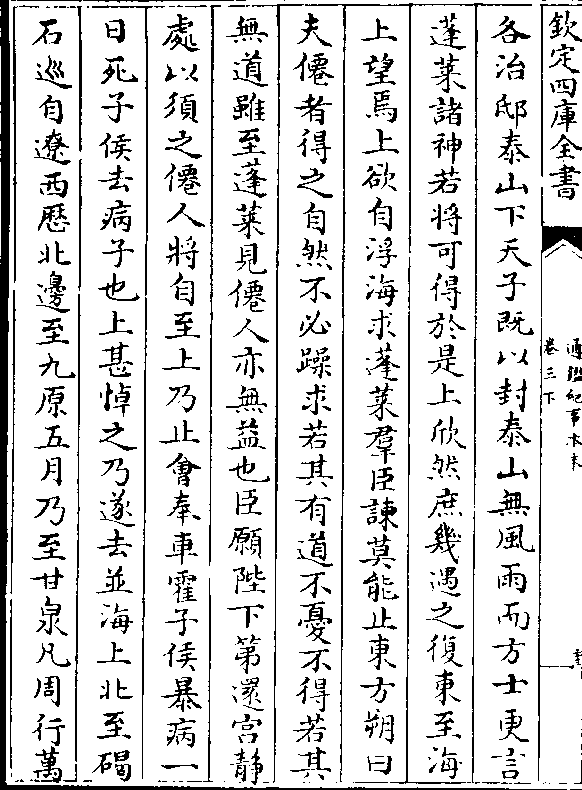 欽定四庫全書
通鑑紀事本末
卷三下
各治邸泰山下天子既以封泰山無風雨而方士更言
蓬萊諸神若將可得於是上欣然庶幾遇之復東至海
上望焉上欲自浮海求蓬萊羣臣諫莫能止東方朔曰
夫僊者得之自然不必躁求若其有道不憂不得若其
無道雖至蓬萊見僊人亦無益也臣願陛下第還宮靜
處以須之僊人將自至上乃止會奉車霍子侯暴病一
日死子侯去病子也上甚悼之乃遂去並海上北至碣
石巡自遼西歷北邊至九原五月乃至甘泉凡周行萬